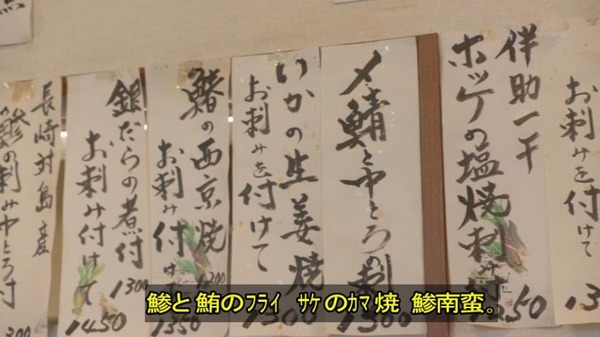 お刺みを付けて
13
伴助一干
ホッケの塩焼刺み付
50
〆鯖と中とろの刺
1300
いかの生姜焼
お刺みを付けて
1300
鰆の西京焼
お刺み付け
1350
銀だらの煮付
1300
お刺み付けて
1450
長崎対島産
鯵の刺み中とろ付
鯵と鮪のﾌﾗｲ ｻｹのｶﾏ焼 鯵南蛮。